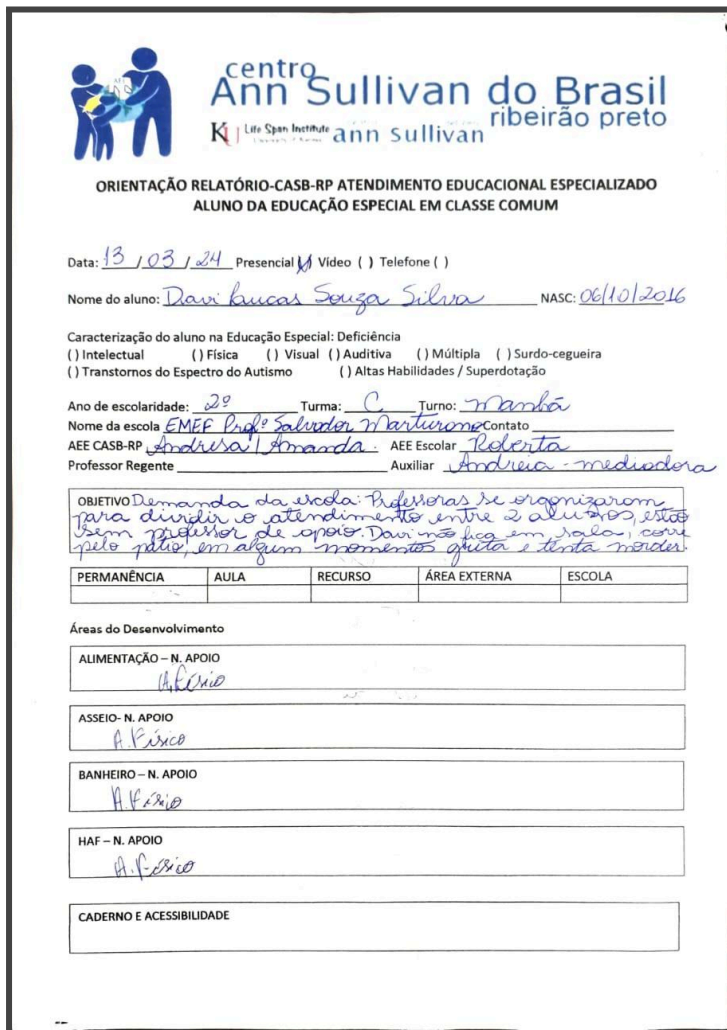 centro
Ann Sullivan do Brasil
ribeirão preto
KU Life Span Institute ann sullivan
ORIENTAÇÃO RELATÓRIO-CASB-RP ATENDIMENTO EDUCACIONAL ESPECIALIZADO
ALUNO DA EDUCAÇÃO ESPECIAL EM CLASSE COMUM
Data: 13 / 03 / 24 Presencial (x) Vídeo ( ) Telefone ( )
Nome do aluno: Davi Lucas Souza Silva NASC: 06/10/2016
Caracterização do aluno na Educação Especial: Deficiência
( ) Intelectual ( ) Física ( ) Visual ( ) Auditiva ( ) Múltipla ( ) Surdo-cegueira
( ) Transtornos do Espectro do Autismo ( ) Altas Habilidades / Superdotação
Ano de escolaridade: 2º Turma: C Turno: Manhã
Nome da escola EMEF Profº Salvador Marturano Contato
AEE CASB-RP Andresa / Amanda. AEE Escolar Roberta
Professor Regente Auxiliar Andreia - mediadora
OBJETIVO Demanda da escola: Professoras se organizaram
para dividir o atendimento entre 2 alunos, estão
sem professor de apoio. Davi não fica em sala, corre
pelo pátio, em algum momentos grita e tenta morder.
PERMANÊNCIA AULA RECURSO ÁREA EXTERNA ESCOLA
Áreas do Desenvolvimento
ALIMENTAÇÃO – N. APOIO
A. Físico
ASSEIO- N. APOIO
A. Físico
BANHEIRO – N. APOIO
A. Físico
HAF – N. APOIO
A. Físico
CADERNO E ACESSIBILIDADE